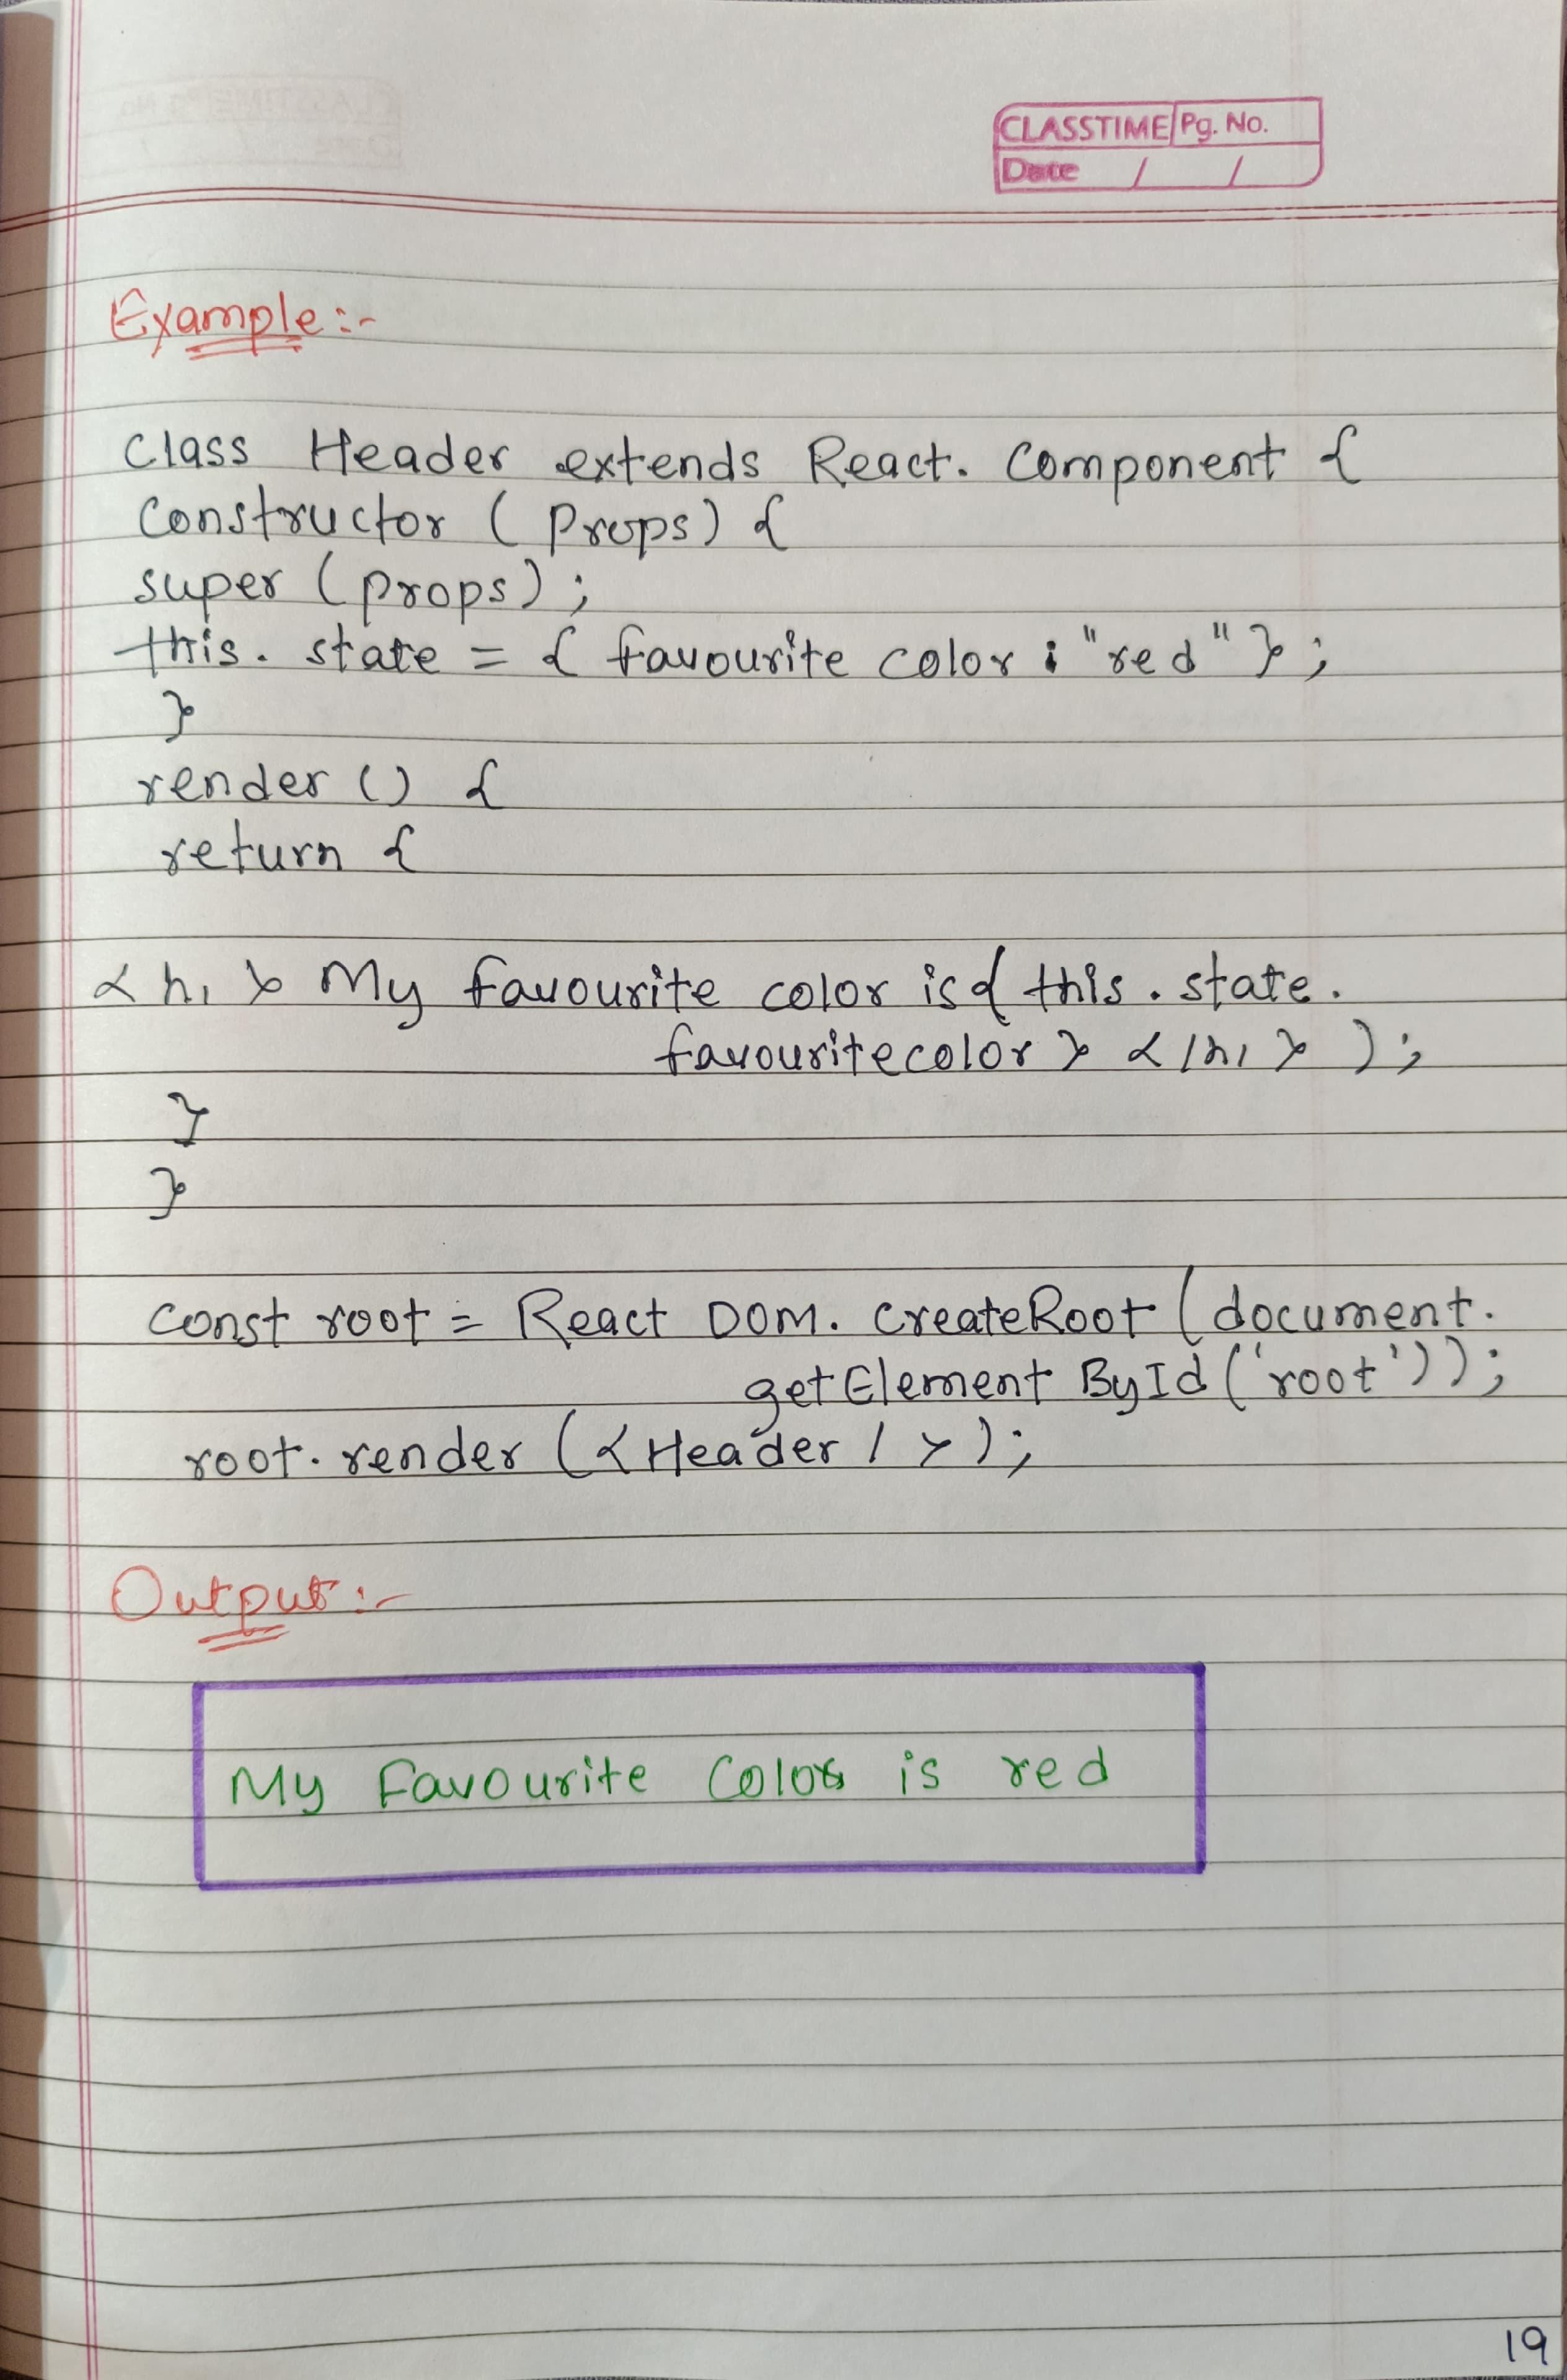 CLASSTIME Pg. No.
Date / /
Example:-
Class Header extends React. Component {
Constructor ( Props) {
super (props) ;
this. state = { favourite color : "red" } ;
}
render () {
return {
<h1> My favourite color is{ this . state .
favouritecolor } </h1> ) ;
}
}
const root = React DOM. createRoot (document.
getElement ById ('root')) ;
root. render (<Header / >) ;
Output:-
My Favourite Color is red
19